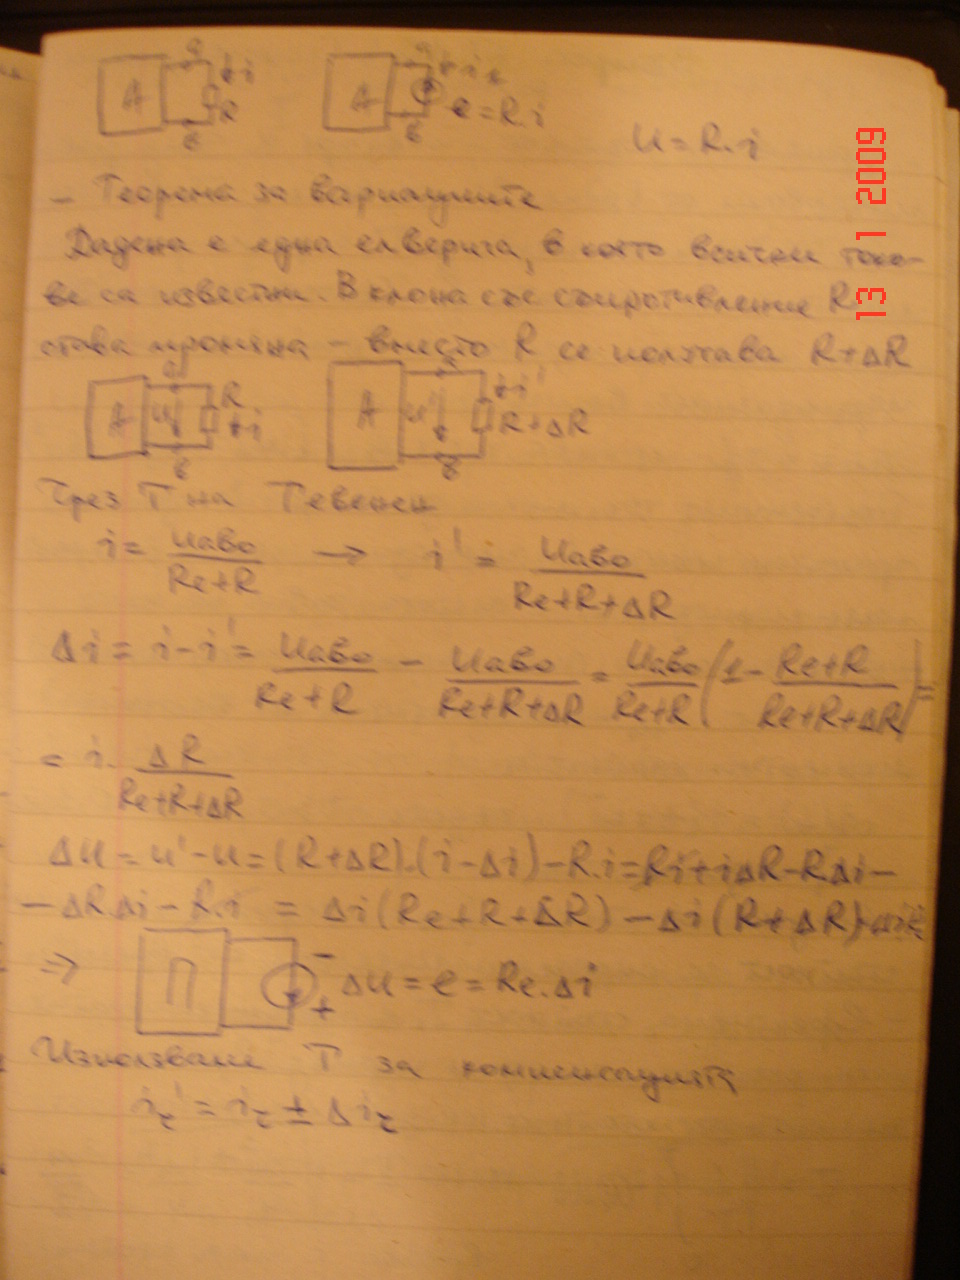 а
A
i
R
в
а
A
i
e = R.i
в
U = R.i
13 1 2009
– Теорема за вариациите
Дадена е една ел верига, в която всички токо-
ве са известни. В клона със съпротивление R
става промяна – вместо R се получава R+ΔR
а
A
u
R
i
в
A
u'
i'
R+ΔR
в
Чрез Т на Тевенен
i = Uabo/(Re+R) → i' = Uabo/(Re+R+ΔR)
Δi = i-i' = Uabo/(Re+R) – Uabo/(Re+R+ΔR) = Uabo/(Re+R) (1- (Re+R)/(Re+R+ΔR)) =
= i. ΔR/(Re+R+ΔR)
Δu = u'-u = (R+ΔR).(i-Δi)-R.i = Ri+iΔR-R.Δi-
-ΔR.Δi-R.i = Δi(Re+R+ΔR)-Δi(R+ΔR)
⇒ П – + Δu = e = Re.Δi
Използваме Т за компенсацията